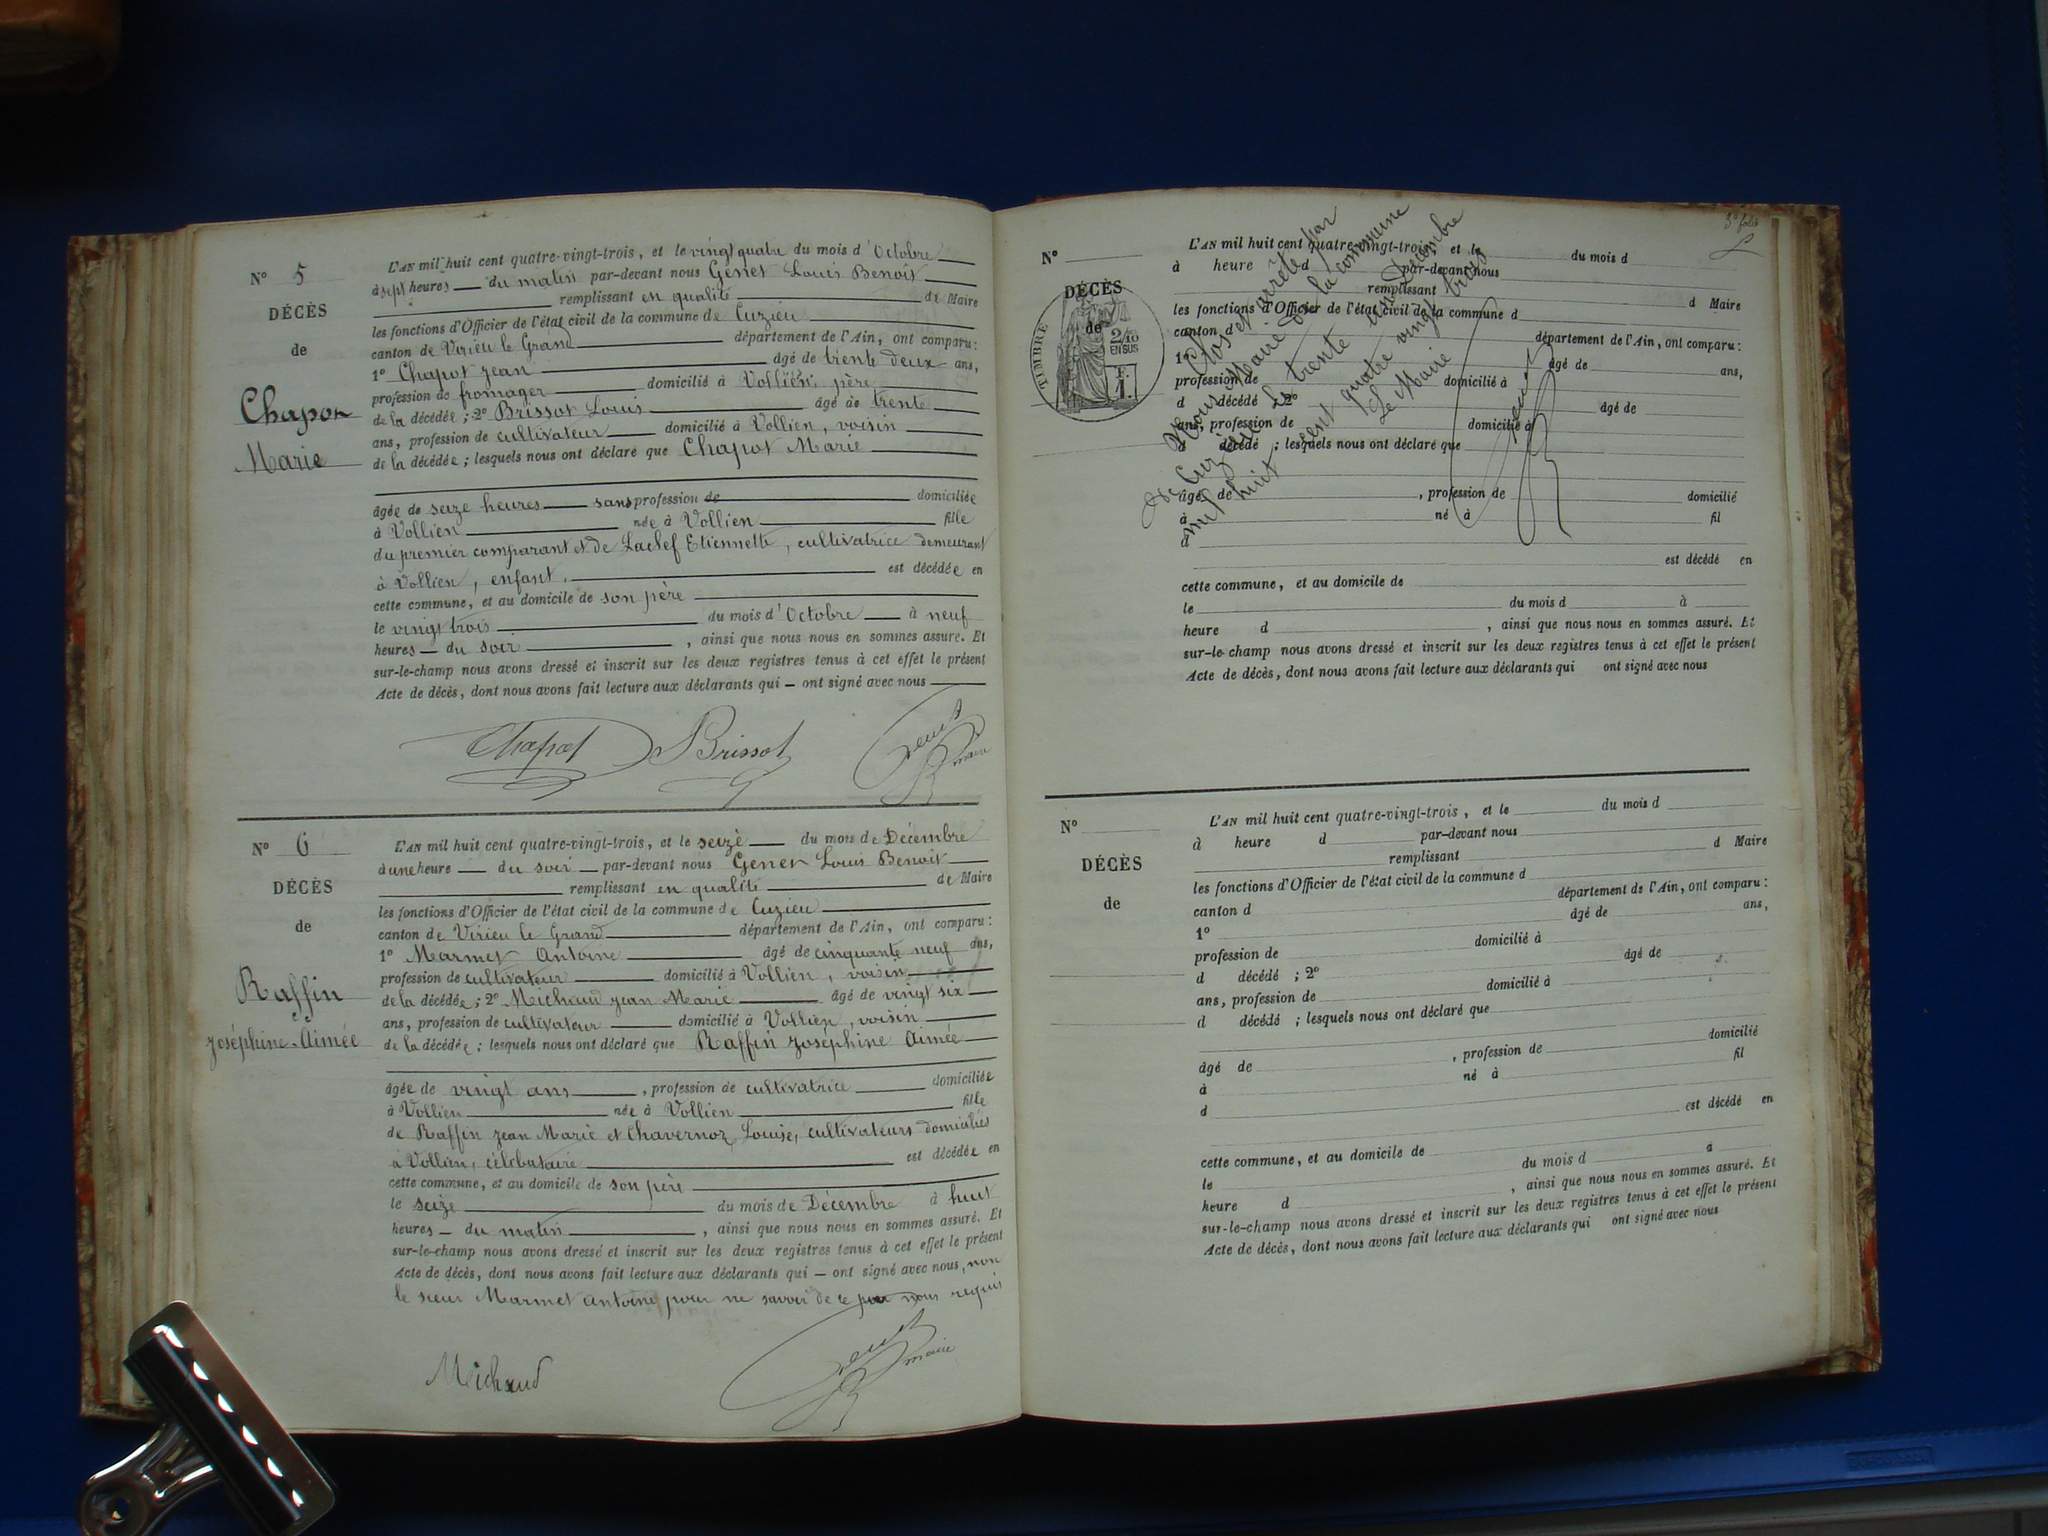 N° 5
DÉCÈS
de
Chapot
Marie
L'AN mil huit cent quatre-vingt-trois, et le vingt quatre du mois d'Octobre
à sept heures du matin par-devant nous Genet Louis Benoît
remplissant en qualité de Maire
les fonctions d'Officier de l'état civil de la commune de Cuzieu
canton de Virieu le Grand département de l'Ain, ont comparu:
1° Chapot Jean âgé de trente deux ans,
profession de fromager domicilié à Vollien, père
de la décédée; 2° Brissot Louis âgé de trente
ans, profession de cultivateur domicilié à Vollien, voisin
de la décédée; lesquels nous ont déclaré que Chapot Marie
âgée de seize heures sans profession de domiciliée
à Vollien née à Vollien fille
du premier comparant et de Laclef Etiennette, cultivatrice demeurant
à Vollien, enfant, est décédée en
cette commune, et au domicile de son père
le vingt trois du mois d'Octobre à neuf
heures du soir, ainsi que nous nous en sommes assuré. Et
sur-le-champ nous avons dressé et inscrit sur les deux registres tenus à cet effet le présent
Acte de décès, dont nous avons fait lecture aux déclarants qui — ont signé avec nous
Chapot Brissot Genet maire
N° 6
DÉCÈS
de
Raffin
Joséphine-Aimée
L'AN mil huit cent quatre-vingt-trois, et le seize du mois de Décembre
à une heure du soir par-devant nous Genet Louis Benoît
remplissant en qualité de Maire
les fonctions d'Officier de l'état civil de la commune de Cuzieu
canton de Virieu le Grand département de l'Ain, ont comparu:
1° Marmet Antoine âgé de cinquante neuf ans,
profession de cultivateur domicilié à Vollien, voisin
de la décédée; 2° Michaud Jean Marie âgé de vingt six
ans, profession de cultivateur domicilié à Vollien, voisin
de la décédée; lesquels nous ont déclaré que Raffin Joséphine Aimée
âgée de vingt ans, profession de cultivatrice domiciliée
à Vollien née à Vollien fille
de Raffin Jean Marie et Chavernoz Louise, cultivateurs domiciliés
à Vollien, célibataire est décédée en
cette commune, et au domicile de son père
le seize du mois de Décembre à huit
heures du matin, ainsi que nous nous en sommes assuré. Et
sur-le-champ nous avons dressé et inscrit sur les deux registres tenus à cet effet le présent
Acte de décès, dont nous avons fait lecture aux déclarants qui — ont signé avec nous, non
le sieur Marmet Antoine pour ne savoir de ce par nous requis
Michaud Genet maire
3e folio
N°
DÉCÈS
de
TIMBRE
2/10
EN SUS
F. 1.
L'AN mil huit cent quatre-vingt-trois, et le du mois d
à heure d par-devant nous
remplissant d Maire
les fonctions d'Officier de l'état civil de la commune d
canton d département de l'Ain, ont comparu:
1° âgé de ans,
profession de domicilié à
d décédé; 2° âgé de
ans, profession de domicilié à
d décédé; lesquels nous ont déclaré que
âgé de, profession de domicilié
à né à fil
d
est décédé en
cette commune, et au domicile de
le du mois d à
heure d, ainsi que nous nous en sommes assuré. Et
sur-le-champ nous avons dressé et inscrit sur les deux registres tenus à cet effet le présent
Acte de décès, dont nous avons fait lecture aux déclarants qui ont signé avec nous
Clos et arrêté par
Nous Maire de la commune
de Cuzieu le trente un Décembre
mil huit cent quatre vingt trois
Le Maire
Genet
N°
DÉCÈS
de
L'AN mil huit cent quatre-vingt-trois, et le du mois d
à heure d par-devant nous
remplissant d Maire
les fonctions d'Officier de l'état civil de la commune d
canton d département de l'Ain, ont comparu:
1° âgé de ans,
profession de domicilié à
d décédé; 2° âgé de
ans, profession de domicilié à
d décédé; lesquels nous ont déclaré que
âgé de, profession de domicilié
à né à fil
d
est décédé en
cette commune, et au domicile de
le du mois d à
heure d, ainsi que nous nous en sommes assuré. Et
sur-le-champ nous avons dressé et inscrit sur les deux registres tenus à cet effet le présent
Acte de décès, dont nous avons fait lecture aux déclarants qui ont signé avec nous